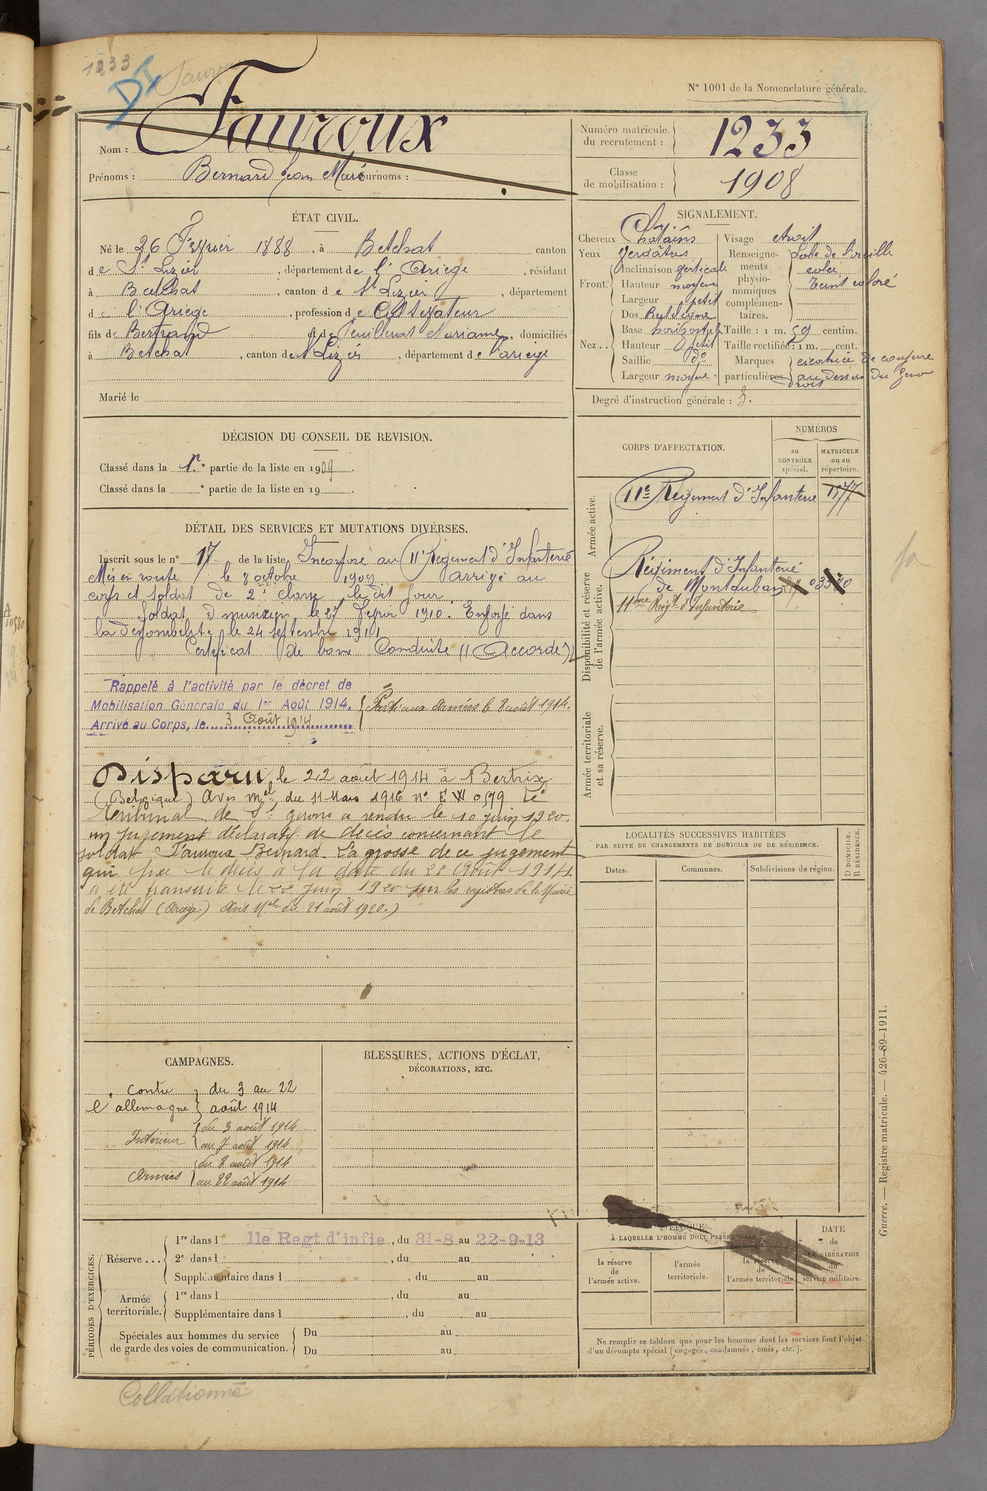 1233
DI
Fauroux
N° 1001 de la Nomenclature générale.
Nom : Fauroux
Prénoms : Bernard Jean Marie Surnoms :
Numéro matricule du recrutement : 1233
Classe de mobilisation : 1908
ÉTAT CIVIL.
Né le 26 Février 1888, à Betchat canton
de St Lizier, département de l'Ariège, résidant
à Betchat, canton de St Lizier, département
de l'Ariège, profession de Cultivateur
fils de Bertrand et de Marianne, domiciliés
à Betchat, canton de St Lizier, département de l'ariège
Marié le
SIGNALEMENT.
Cheveux Châtains
Yeux Verdâtres
Front Inclinaison verticale
Hauteur moyen
Largeur petit
Nez Dos Rectiligne
Base horizontale
Hauteur petit
Saillie do
Largeur moyen
Visage étroit
Renseignements physionomiques complémentaires. Lobe de l'oreille
Teint coloré
Taille : 1 m. 59 centim.
Taille rectifiée : 1 m. cent.
Marques particulières cicatrice de coupure
au dessus du genou
droit
Degré d'instruction générale : 3.
DÉCISION DU CONSEIL DE REVISION.
Classé dans la 1re partie de la liste en 1909.
Classé dans la e partie de la liste en 19 .
CORPS D'AFFECTATION.
NUMÉROS
au CONTRÔLE spécial.
MATRICULE ou au répertoire.
Armée active.
11e Régiment d'Infanterie 1177
Disponibilité et réserve de l'armée active.
Régiment d'Infanterie
de Montauban
11ème Régt d'Infanterie
Armée territoriale et sa réserve.
DÉTAIL DES SERVICES ET MUTATIONS DIVERSES.
Inscrit sous le n° 17 de la liste Incorporé au 11e Régiment d'Infanterie
Mis en route le 8 octobre 1909 arrivé au
corps et soldat de 2e classe le dit jour.
Soldat musicien le 27 Février 1910. Envoyé dans
la disponibilité le 24 septembre 1911
Certificat de bonne Conduite "Accordé"
Rappelé à l'activité par le décret de
Mobilisation Générale du 1er Août 1914.
Arrivé au Corps, le 3 Août 1914
Parti aux Armées le 8 août 1914.
Disparu le 22 août 1914 à Bertrix
(Belgique) Avis mel du 11 Mars 1916 n° E W 0579 Le
tribunal de St Girons a rendu le 10 juin 1920
un jugement déclaratif de décès concernant le
soldat Fauroux Bernard. La grosse de ce jugement
qui fixe le décès à la date du 22 Août 1914
a été transcrite le 22 juin 1920 sur les registres de la Mairie
de Betchat (Ariège) Avis Mel du 21 août 1920.)
LOCALITÉS SUCCESSIVES HABITÉES
PAR SUITE DE CHANGEMENTS DE DOMICILE OU DE RÉSIDENCE.
Dates.
Communes.
Subdivisions de région.
D DOMICILE. R RÉSIDENCE.
CAMPAGNES.
Contre l'allemagne du 3 au 22 août 1914
Intérieur du 3 août 1914
au 7 août 1914
Armées du 8 août 1914
au 22 août 1914
BLESSURES, ACTIONS D'ÉCLAT,
DÉCORATIONS, ETC.
PÉRIODES D'EXERCICES.
Réserve ... 1re dans l 11e Regt d'infie, du 31-8 au 22-9-13
2e dans l , du au
Supplémentaire dans l , du au
Armée territoriale. 1re dans l , du au
Supplémentaire dans l , du au
Spéciales aux hommes du service de garde des voies de communication. Du au
Du au
ÉPOQUE
À LAQUELLE L'HOMME DOIT PASSER
la réserve de l'armée active.
l'armée territoriale.
la réserve de l'armée territoriale
DATE de LA LIBÉRATION du service militaire.
Ne remplir ce tableau que pour les hommes dont les services font l'objet
d'un décompte spécial (engagés, condamnés, omis, etc.).
Guerre. — Registre matricule. — 426-89-1911.
Collationné